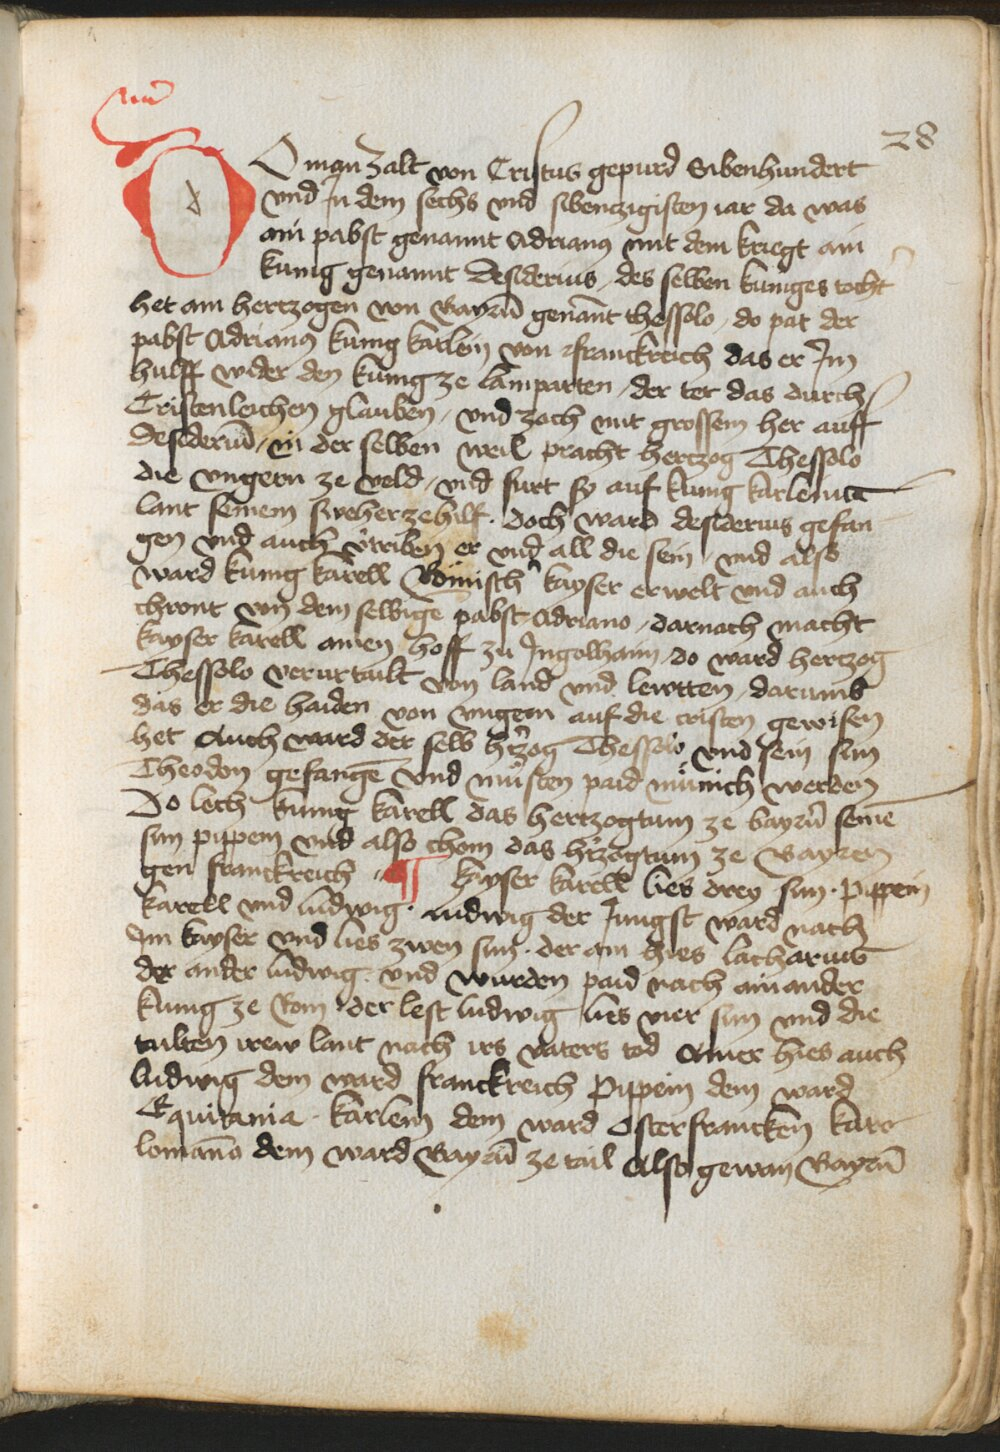 28
Do man zalt von Cristus gepurd Sibenhundert
vnd Jn dem sechs vnd sibenczigisten iar da was
ain pabst genannt Adrianus mit dem kriegt ain
kunig genannt Desiderius, des selben kuniges tocht
het ain hertzogen von Bayrn̄ genān̄t thessolo, do pat der
pabst Adrianus kunig karlein von franckreich das er Jm
hulff wider den kunig ze lamparten, der tet das durch
Cristenleichen glauben, vnd zoch mit grossem her auff
Desideriū, in der selben weil pracht hertzog Thessolo
die vngern ze veld, vnd furt sy auf kunig karleins
lant seinem sweher ze hilf. doch ward desiderius gefan
gen vnd auch vtriben er vnd all die sein, vnd also
ward kunig karell Römisch kayser erwelt vnd auch
chront von dem selbige pabst Adriano, darnach macht
kayser karell ainen hoff zu Jngolhaim, do ward hertzog
Thessolo verurtailt von land vnd lewtten, darumb
das er die haiden von vngern auf die cristen gewisen
het Auch ward der selb htzog Thessolo vnd sein sun
Theodon gefangē vnd musten paid munich werden
Do lech kunig karell das hertzogtum ze bayrn̄ seinē
sun pippein vnd also chom das htzogtum ze Bayren
gen franckreich ¶ kayser karell lies drey sun. Pippein
karell vnd ludwig. ludwig der Jungst ward nach
Jm kayser vnd lies zwen sun. der ain hies lacharius
der ander ludwig. vnd wurden paid nach ainander
kunig ze Rom. der lest ludwig lies vier sun vnd die
tailten irew lant nach irs vaters tod Ainer hies auch
ludwig dem ward franckreich Pippein dem ward
Equitania. karlein dem ward Osterfrancken karo
lomāno dem ward Bayrn̄ ze tail Also gewan Bayrn̄